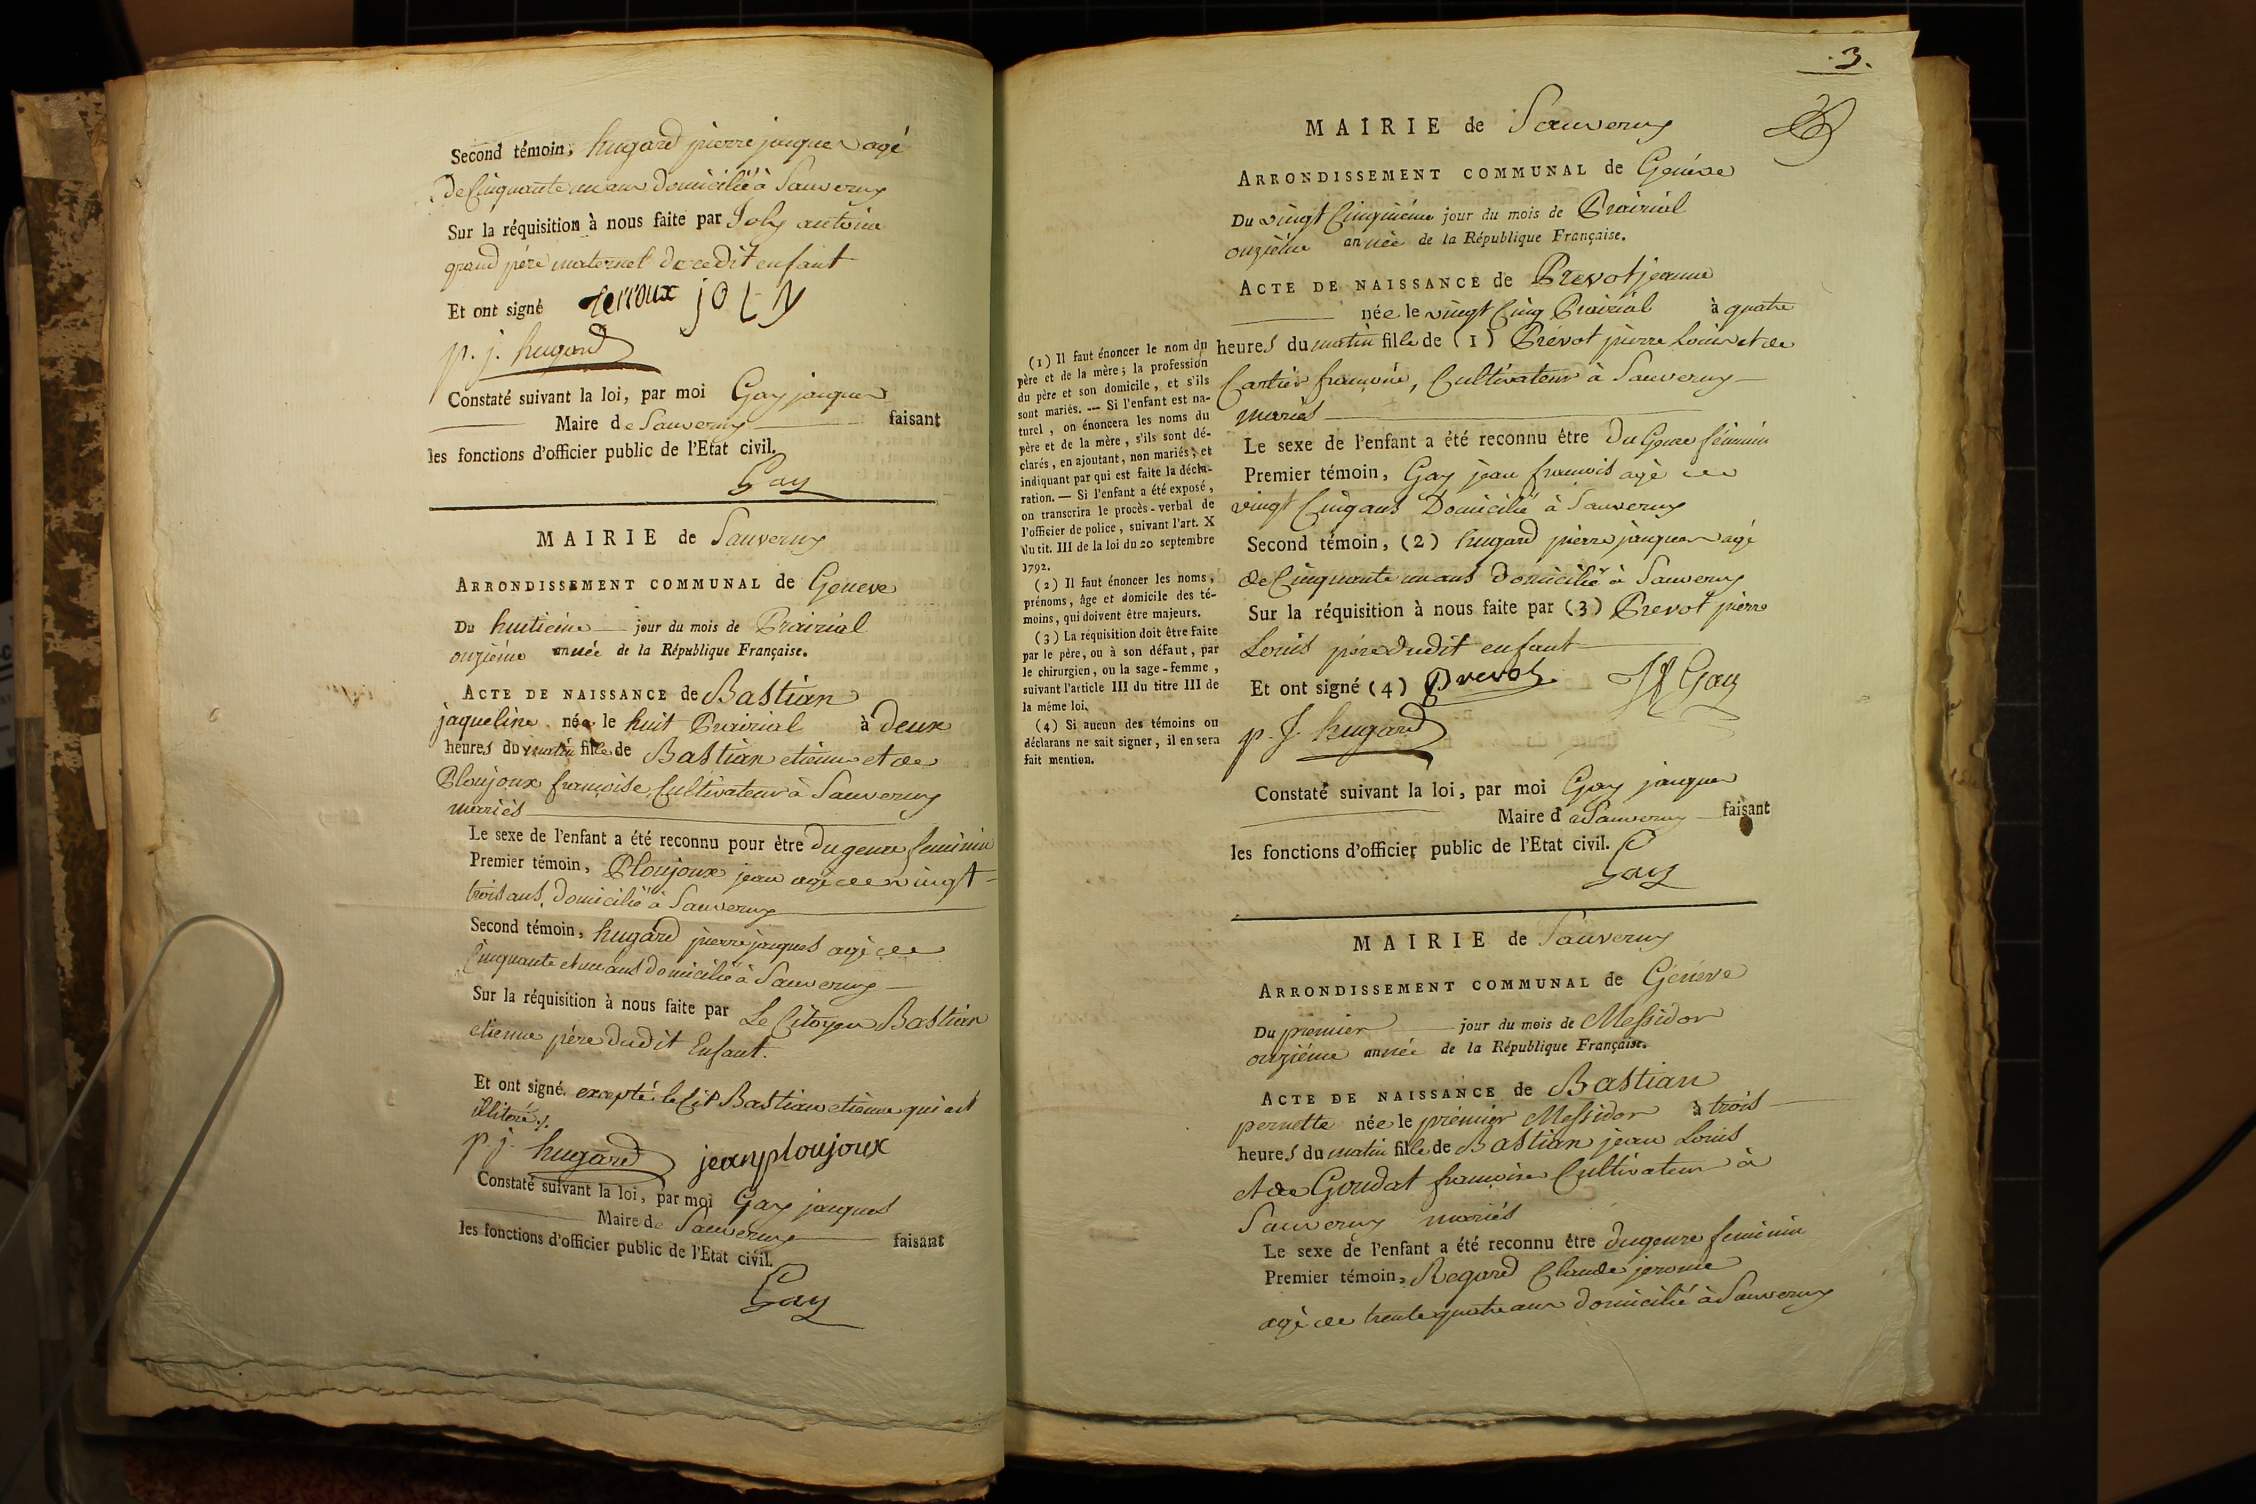 Second témoin, hugard pierre jaques agé
de Cinquante un ans domicilié à Sauverny
Sur la réquisition à nous faite par Joly antoine
grand pére maternel de cedit enfant
Et ont signé terroux jOLy
p. j. hugard
Constaté suivant la loi, par moi Gay jaques
Maire de Sauverny faisant
les fonctions d'officier public de l'Etat civil.
Gay
MAIRIE de Sauverny
ARRONDISSEMENT COMMUNAL de Geneve
Du huitième jour du mois de Prairial
onzième année de la République Française.
ACTE DE NAISSANCE de Bastian
jaqueline née le huit Prairial à deux
heures du matin fille de Bastian etienne et de
Ploujoux françoise, Cultivateur à Sauverny
mariés
Le sexe de l'enfant a été reconnu pour être du genre feminin
Premier témoin, Ploujoux jean agé de vingt-
trois ans, domicilié à Sauverny
Second témoin, hugard pierre jaques agé de
Cinquante et un ans domicilié à Sauverny
Sur la réquisition à nous faite par Le Citoyen Bastian
etienne pére dudit Enfant.
Et ont signé. excepté le Cit Bastian etienne qui est
illiteré.
p. j. hugard jean ploujoux
Constaté suivant la loi, par moi Gay jaques
Maire de Sauverny faisant
les fonctions d'officier public de l'Etat civil.
Gay
3.
MAIRIE de Sauverny
ARRONDISSEMENT COMMUNAL de Genéve
Du vingt Cinquiéme jour du mois de Prairial
onziéme année de la République Française.
ACTE DE NAISSANCE de Prevot jeanne
née le vingt Cinq Prairial à quatre
heures du matin fille de (1) Prévot pierre Louis et de
Cartier françoise, Cultivateur à Sauverny
mariés
Le sexe de l'enfant a été reconnu être du Genre féminin
Premier témoin, Gay jean françois agé de
vingt Cinq ans Domicilié à Sauverny
Second témoin, (2) hugard pierre jaques agé
de Cinquante un ans domicilié à Sauverny
Sur la réquisition à nous faite par (3) Prevot pierre
Louis pére dudit enfant
Et ont signé (4) Prevot Gay
p. J. hugard
Constaté suivant la loi, par moi Gay jaques
Maire de Sauverny faisant
les fonctions d'officier public de l'Etat civil.
Gay
(1) Il faut énoncer le nom du
père et de la mère ; la profession
du père et son domicile, et s'ils
sont mariés. --- Si l'enfant est na-
turel, on énoncera les noms du
père et de la mère, s'ils sont dé-
clarés, en ajoutant, non mariés ; et
indiquant par qui est faite la décla-
ration. — Si l'enfant a été exposé,
on transcrira le procès-verbal de
l'officier de police, suivant l'art. X
du tit. III de la loi du 20 septembre
1792.
(2) Il faut énoncer les noms,
prénoms, âge et domicile des té-
moins, qui doivent être majeurs.
(3) La réquisition doit être faite
par le père, ou à son défaut, par
le chirurgien, ou la sage-femme,
suivant l'article III du titre III de
la même loi.
(4) Si aucun des témoins ou
déclarans ne sait signer, il en sera
fait mention.
MAIRIE de Sauverny
ARRONDISSEMENT COMMUNAL de Genéve
Du premier jour du mois de Messidor
onziéme année de la République Française.
ACTE DE NAISSANCE de Bastian
pernette née le prémier Messidor à trois
heures du matin fille de Bastian jean Louis
et de Goudat françoise Cultivateur à
Sauverny mariés
Le sexe de l'enfant a été reconnu être du genre feminin
Premier témoin, Regard Claude jerome
agé de trente quatre ans domicilié à Sauverny